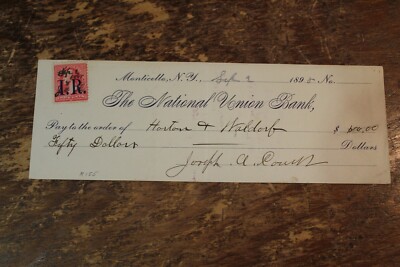 I.R.
Monticello, N.Y., Sep 2 1898 No.
The National Union Bank,
Pay to the order of Horton & Waldorf $
Fifty Dollars Dollars
Joseph A.